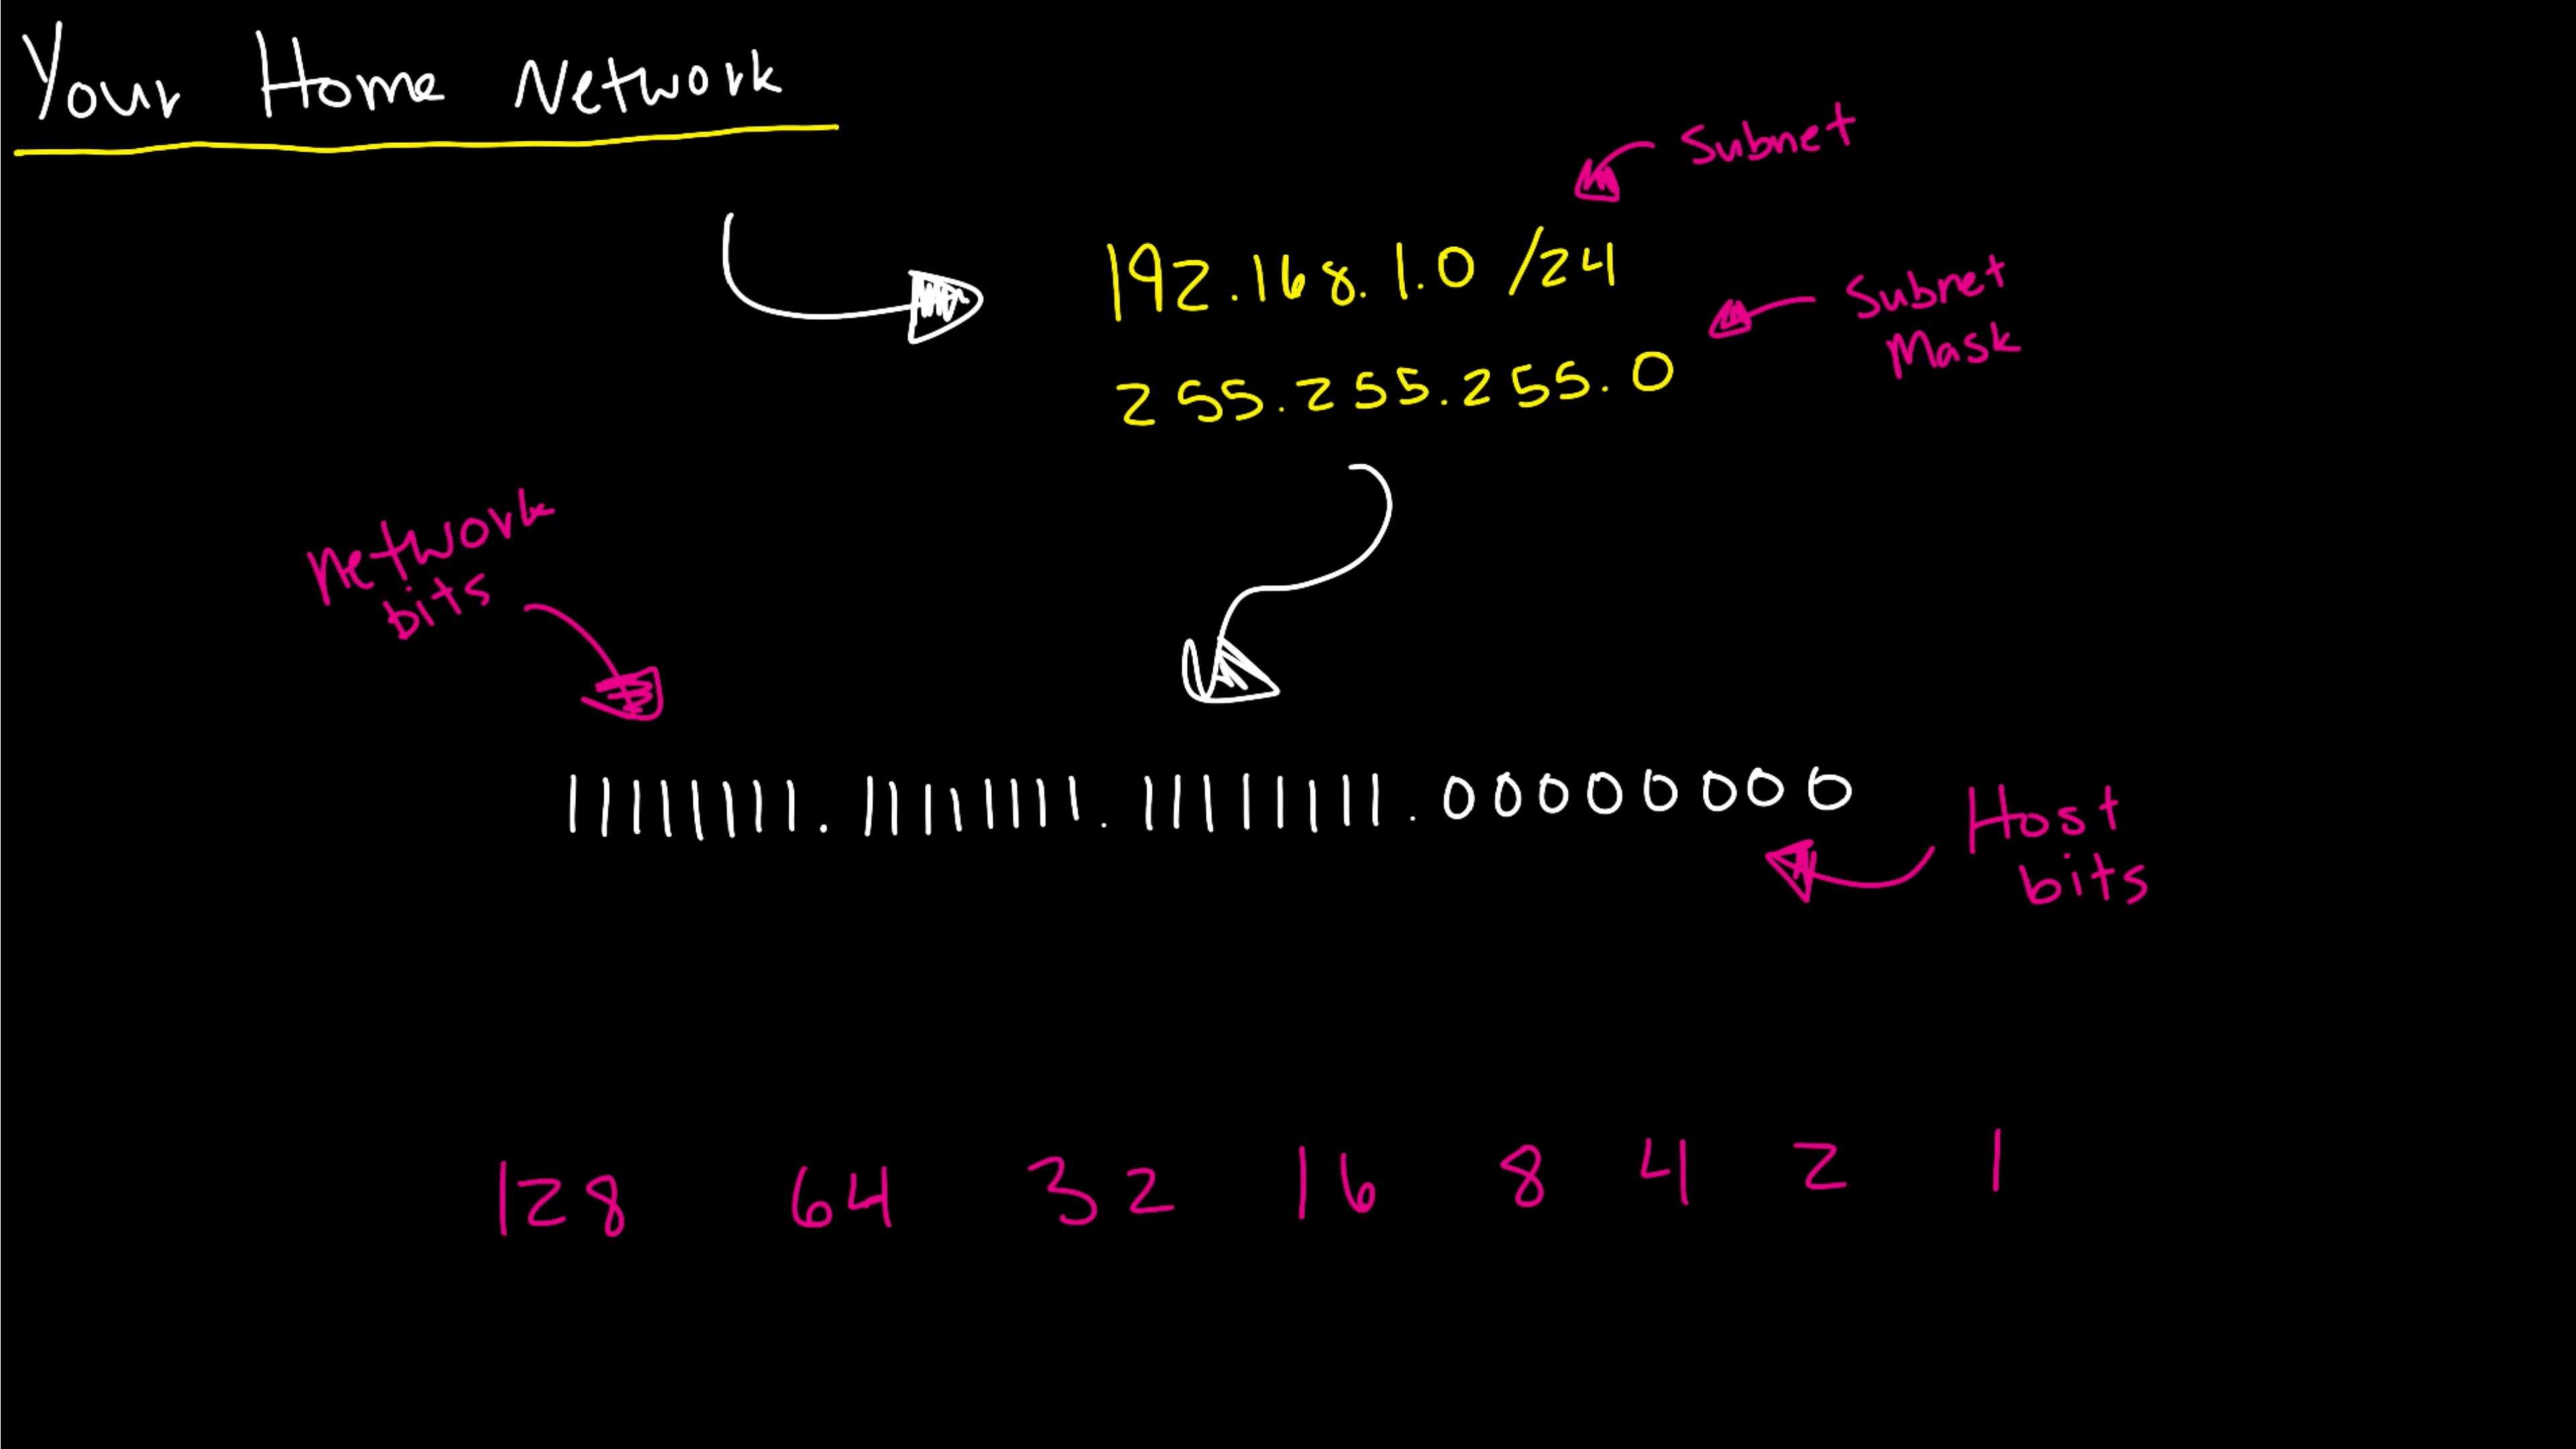 Your Home Network
Subnet
192.168.1.0 /24
Subnet
Mask
255.255.255.0
Network
bits
11111111.11111111.11111111.00000000
Host
bits
128 64 32 16 8 4 2 1